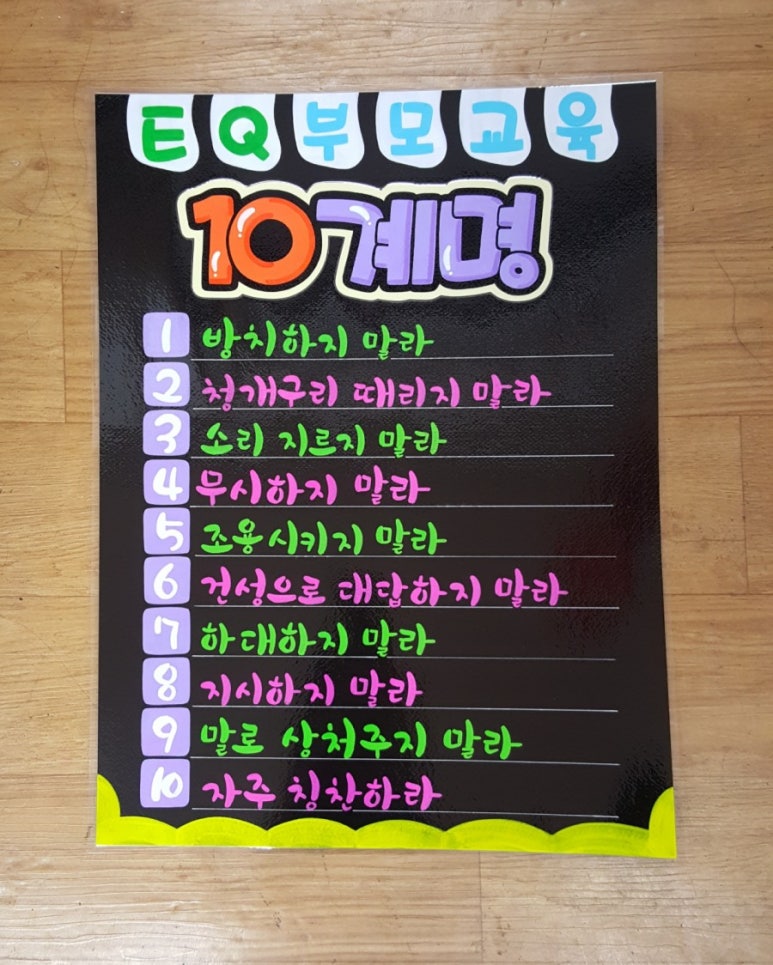 EQ부모교육
10계명
1 방치하지 말라
2 청개구리 때리지 말라
3 소리 지르지 말라
4 무시하지 말라
5 조용시키지 말라
6 건성으로 대답하지 말라
7 하대하지 말라
8 지시하지 말라
9 말로 상처주지 말라
10 자주 칭찬하라